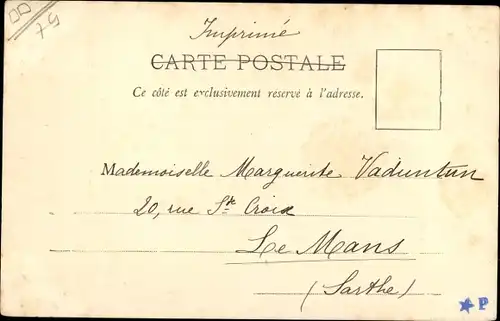 57
Imprimé
CARTE POSTALE
Ce côté est exclusivement réservé à l'adresse.
Mademoiselle Marguerite Vaduntun
20, rue Ste Croix
Le Mans
(Sarthe)
P